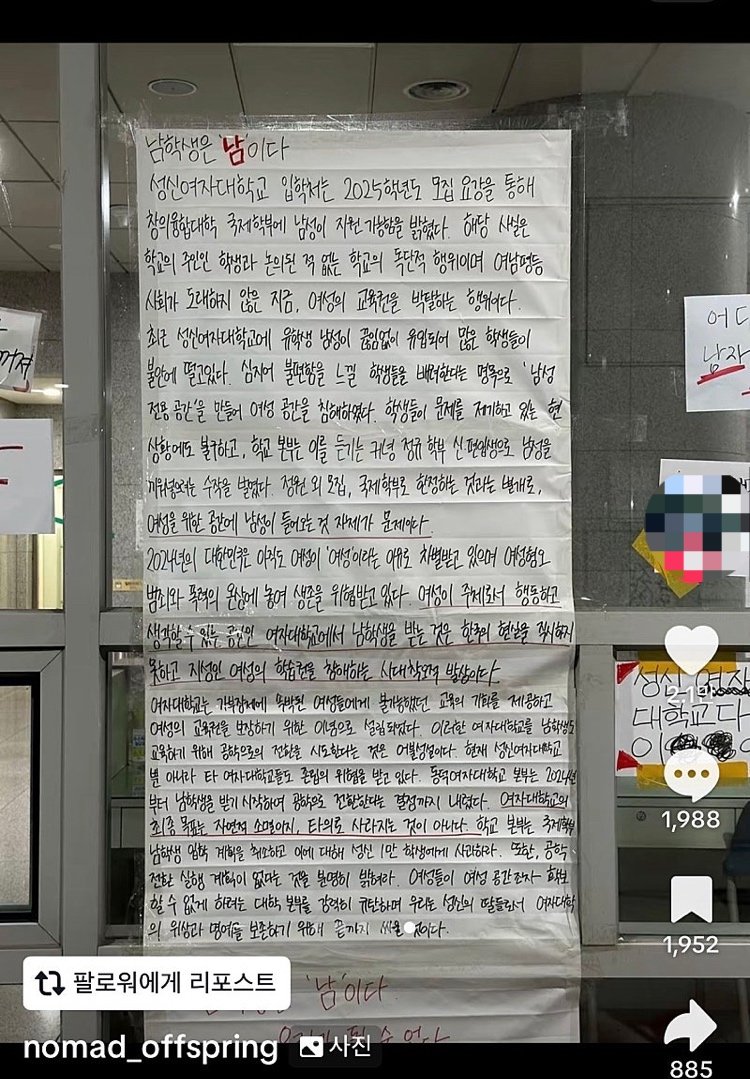 남학생은 '남'이다
성신여자대학교 입학처는 2025학년도 모집 요강을 통해
창의융합대학 국제학부에 남성이 지원 가능함을 밝혔다. 해당 사실은
학교의 주인인 학생과 논의된 적 없는 학교의 독단적 행위이며 여남평등
사회가 도래하지 않은 지금, 여성의 교육권을 박탈하는 행위이다.
최근 성신여자대학교에 유학생 남성이 끊임없이 유입되어 많은 학생들이
불안에 떨고있다. 심지어 불편함을 느낄 학생들을 배려한다는 명목으로 '남성
전용 공간'을 만들어 여성 공간을 침해하였다. 학생들이 문제를 제기하고 있는 현
상황에도 불구하고, 학교 본부는 이를 듣기는 커녕 정규 학부 신·편입생으로 남성을
끼워넣으려는 수작을 벌였다. 정원 외 모집, 국제학부로 한정하는 것과는 별개로,
여성을 위한 공간에 남성이 들어오는 것 자체가 문제이다.
2024년의 대한민국은 아직도 여성이 '여성'이라는 이유로 차별받고 있으며 여성혐오
범죄와 폭력의 온상에 놓여 생존을 위협받고 있다. 여성이 주체로서 행동하고
생각할 수 있는 공간인 여자대학교에서 남학생을 받는 것은 한국의 현실을 직시하지
못하고 지성인 여성의 학습권을 침해하는 시대착오적 발상이다.
여자대학교는 가부장제에 속박된 여성들에게 불가능했던 교육의 기회를 제공하고
여성의 교육권을 보장하기 위한 이념으로 설립되었다. 이러한 여자대학교를 남학생도
교육하기 위해 공학으로의 전환을 시도한다는 것은 어불성설이다. 현재 성신여자대학교
뿐 아니라 타 여자대학교들도 존립의 위협을 받고 있다. 동덕여자대학교 본부는 2024년
부터 남학생을 받기 시작하여 공학으로 전환한다는 결정까지 내렸다. 여자대학교의
최종 목표는 자연적 소멸이지, 타의로 사라지는 것이 아니다. 학교 본부는 국제학부
남학생 입학 계획을 취소하고 이에 대해 성신 1만 학생에게 사과하라. 또한, 공학
전환 실행 계획이 없다는 것을 분명히 밝혀라. 여성들이 여성 공간조차 확보
할 수 없게 하려는 대학 본부를 강력히 규탄하며 우리는 성신의 딸들로서 여자대학
의 위상과 명예를 보존하기 위해 끝까지 싸울 것이다.
'남'이다.
어디
남자
꺼져
성신 여자
대학교다
이
2.1만
1,988
1,952
885
팔로워에게 리포스트
nomad_offspring 사진